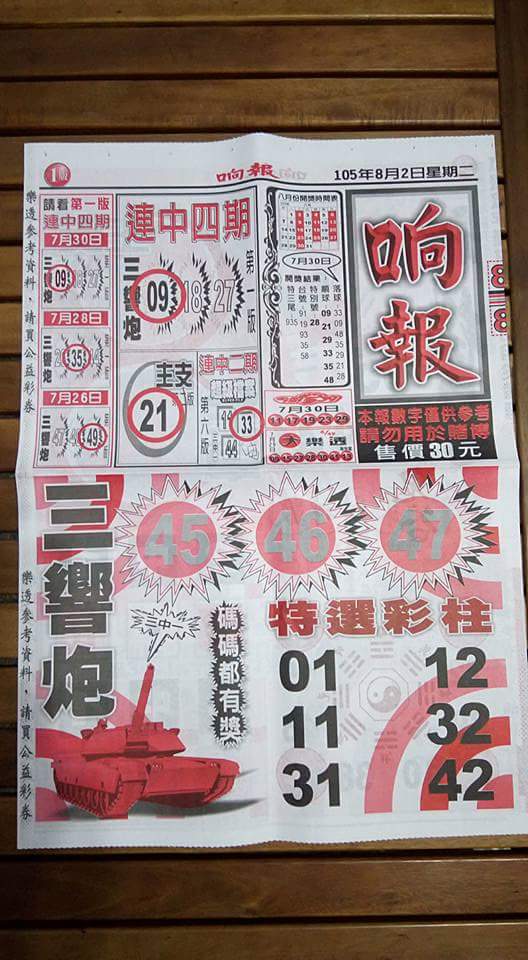 1版
响報
105年8月2日星期二
樂透參考資料，請買公益彩券
請看第一版
連中四期
7月30日
三響炮
09
27
7月28日
三響炮
35
7月26日
三響炮
49
連中四期
第一版
三響炮
09 18 27
21
連中二期
第六版
33
44
八月份開獎時間表
7月30日
開獎結果
特三尾
935
台號
918
特別號
28
順球
09
21
29
33
35
48
落球
33
09
48
35
29
21
7月30日
11 17 19 23 25 29
大樂透
响報
本報數字僅供參考
請勿用於賭博
售價30元
三響炮
45 46 47
三中一
碼碼都有獎
特選彩柱
01 12
11 32
31 42
樂透參考資料，請買公益彩券